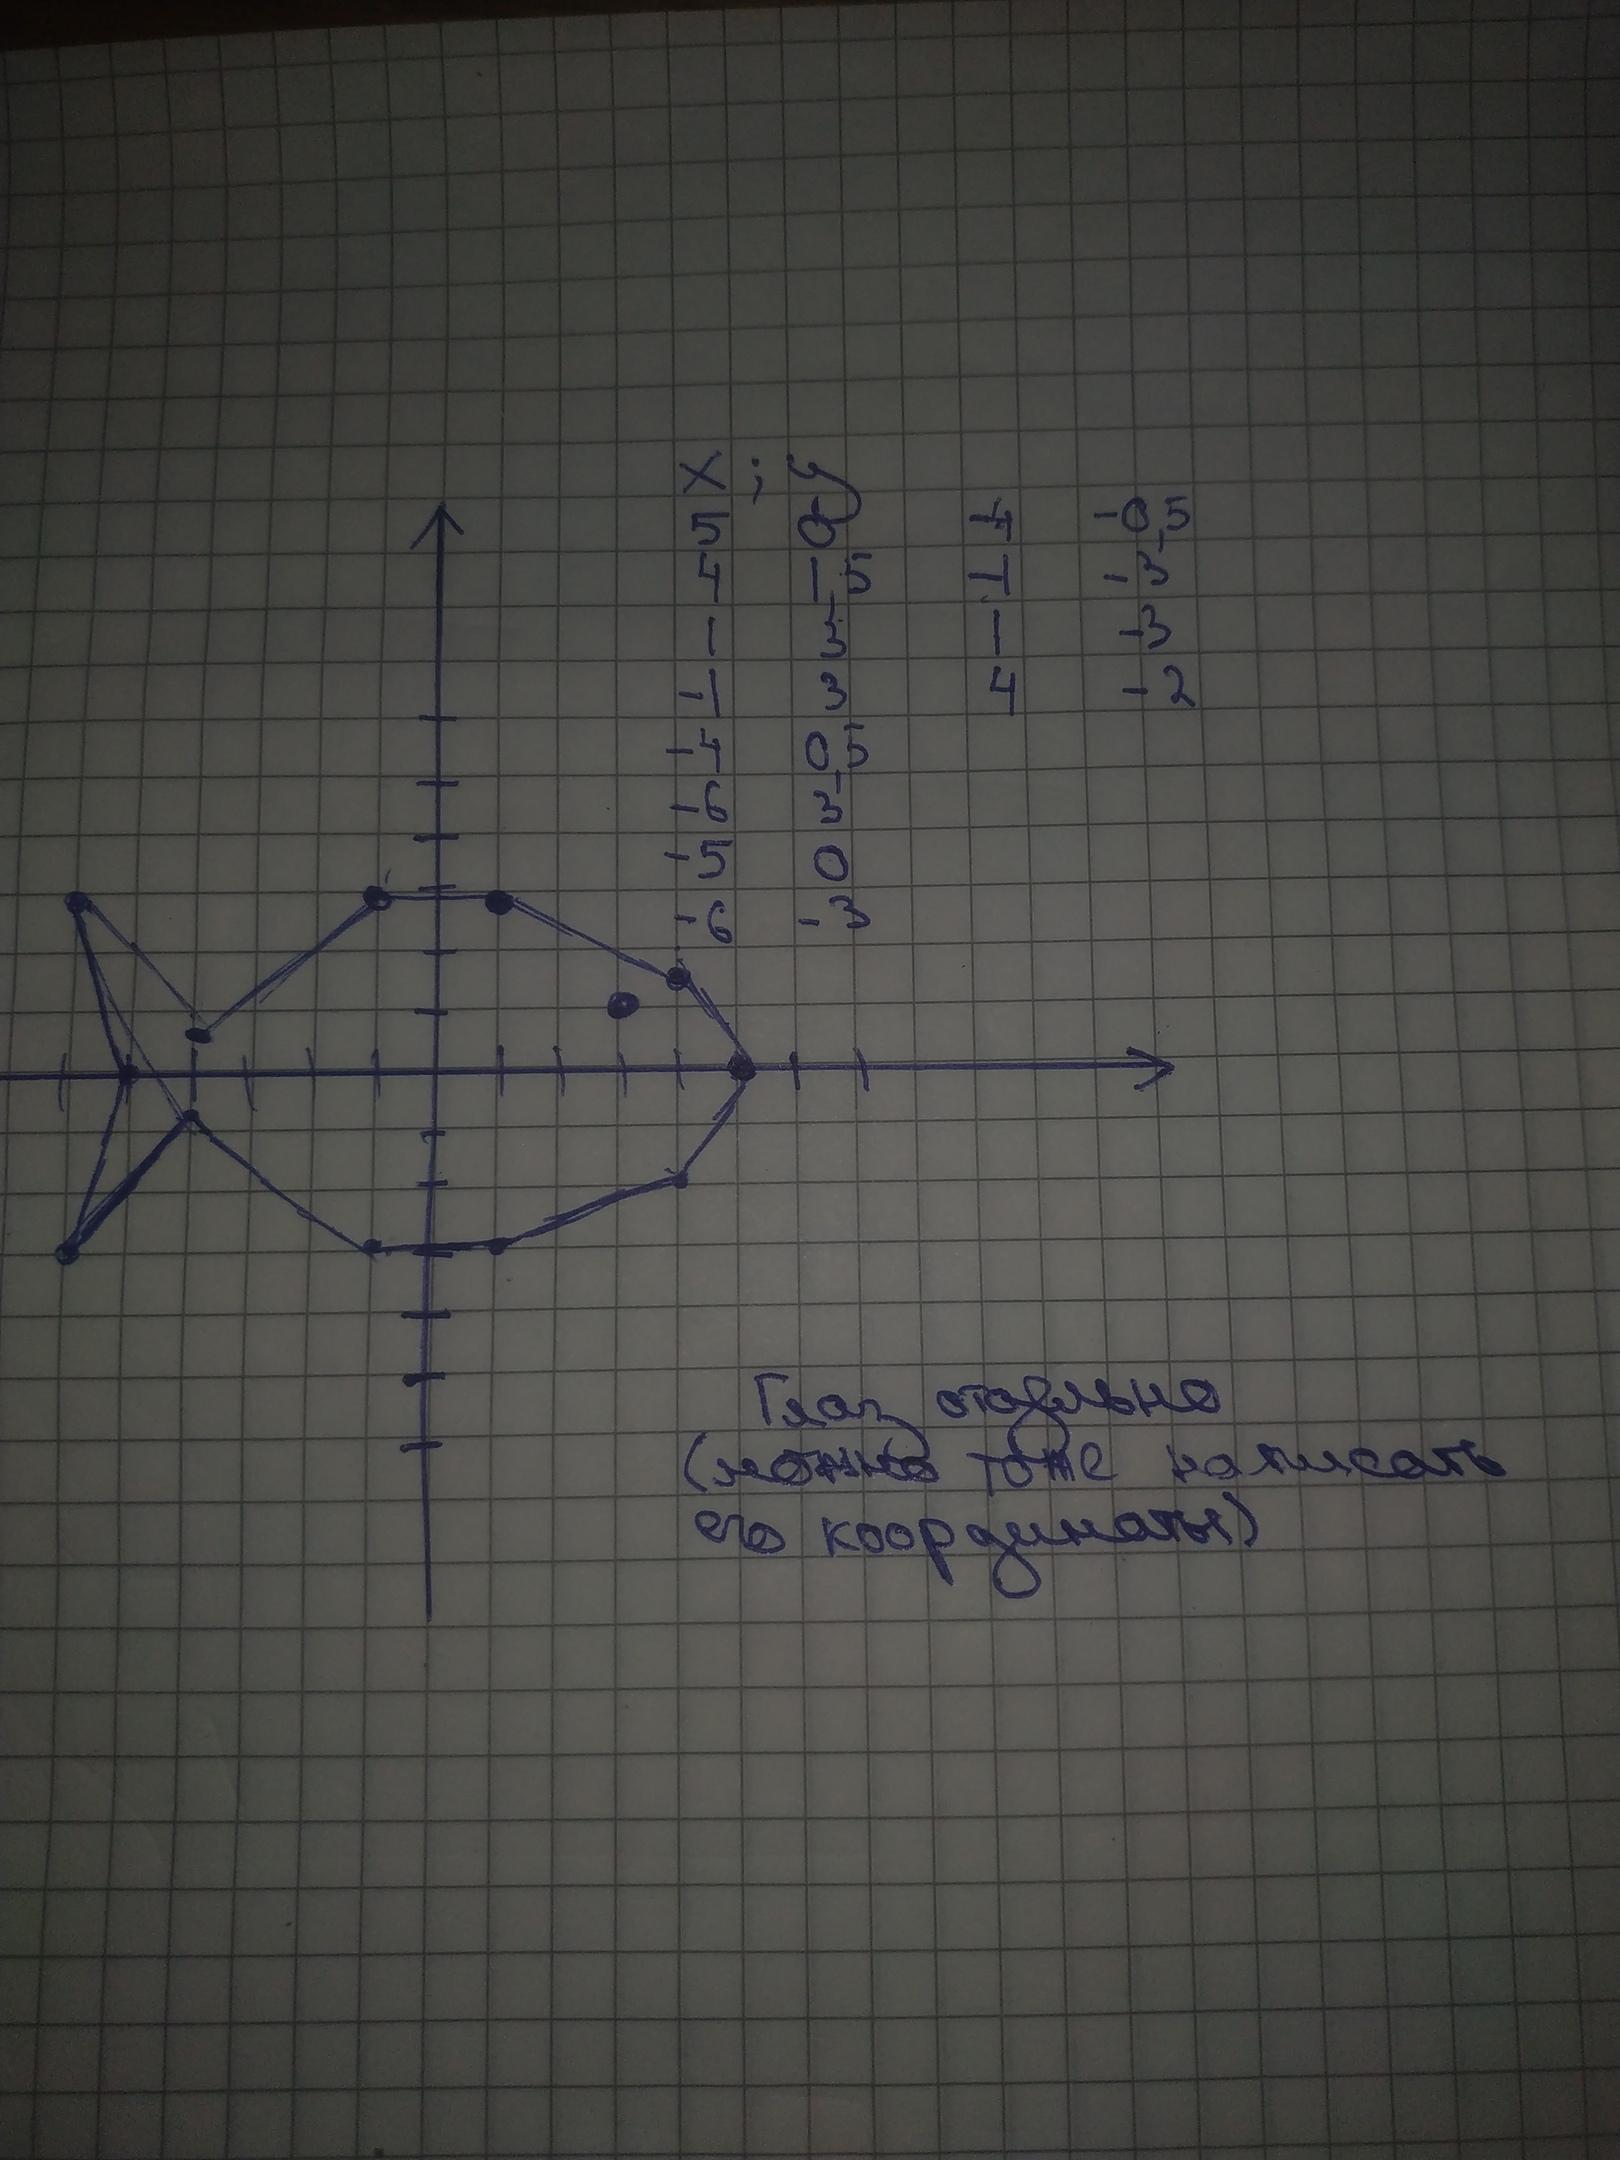 x ; y
5 0
4 1,5
1 3
-1 3
-4 0,5
-6 3
-5 0
-6 -3
-4 -0,5
-1 -3
1 -3
4 -2
Глаз отдельно
(можно тоже написать
его координаты)